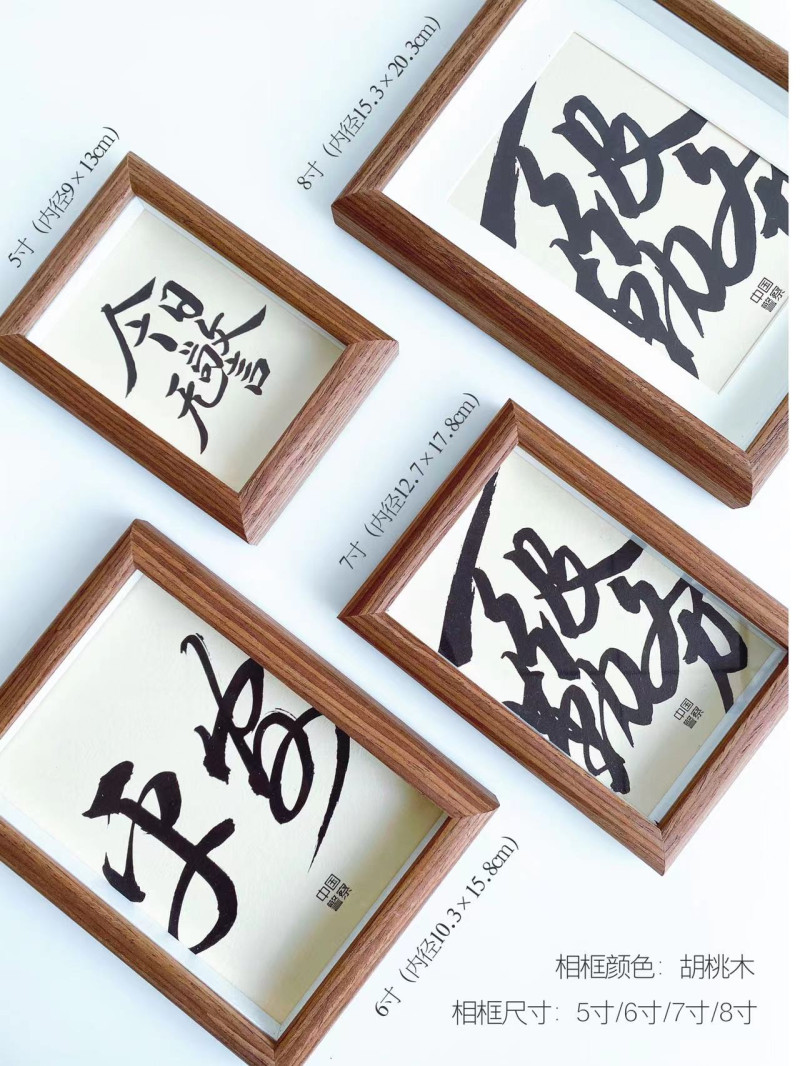 8寸（内径15.3×20.3cm）
一级勤务
中国
警察
5寸（内径9×13cm）
今日无警
7寸（内径12.7×17.8cm）
一级勤务
中国
警察
平安
中国
警察
6寸（内径10.3×15.8cm）
相框颜色：胡桃木
相框尺寸：5寸/6寸/7寸/8寸